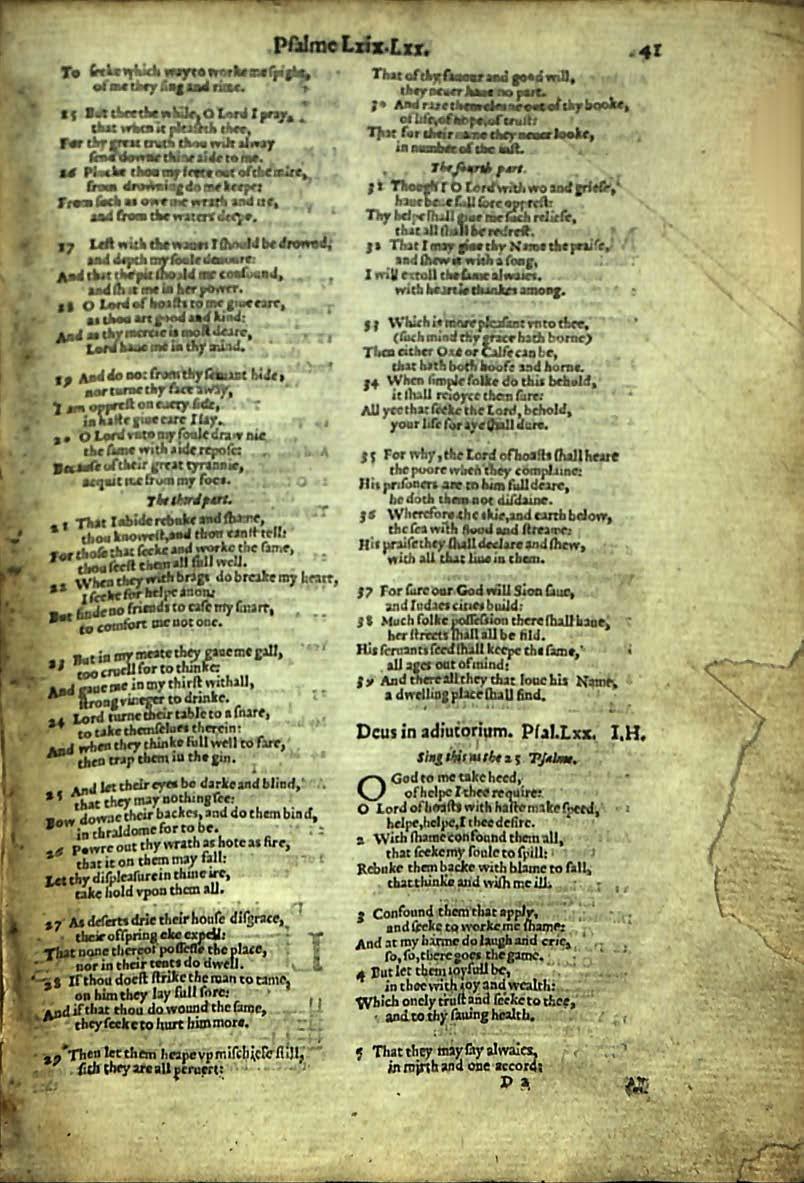 Psalme Lxix.Lxx. 41
To seeke which way to worke me spight,
of me they sing and rime.
15 But thee the while, O Lord I pray,
that when it pleaseth thee,
For thy great truth thou wilt alway
send downe thine aide to me.
16 Plucke thou my feete out of the mire,
from drowning do me keepe:
From such as owe me wrath and ire,
and from the waters deepe.
17 Lest with the waues I should be drowned,
and depth my soule deuoure:
And that the pit should me confound,
and shut me in her power.
18 O Lord of hoasts to me giue eare,
as thou art good and kind:
And as thy mercie is most deare,
Lord haue me in thy mind.
19 And do not from thy seruant hide,
nor turne thy face away,
I am opprest on euery side,
in haste giue eare I say.
20 O Lord vnto my soule draw nie
the same with aide repose:
Because of their great tyrannie,
acquit me from my foes.
The third part.
21 That I abide rebuke and shame,
thou knowest, and thou canst tell:
For those that seeke and worke the same,
thou seest them all full well.
22 When they with brags do breake my heart,
I seeke for helpe anon:
But finde no friends to ease my smart,
to comfort me not one.
23 But in my meate they gaue me gall,
too cruell for to thinke:
And gaue me in my thirst withall,
strong vineger to drinke.
24 Lord turne their table to a snare,
to take themselues therein:
And when they thinke full well to fare,
then trap them in the gin.
25 And let their eyes be darke and blind,
that they may nothing see:
Bow downe their backes, and do them bind,
in thraldome for to be.
26 Powre out thy wrath as hote as fire,
that it on them may fall:
Let thy displeasure in thine ire,
take hold vpon them all.
27 As deserts drie their house disgrace,
their offpring eke expell:
That none thereof possesse the place,
nor in their tents do dwell.
28 If thou doest strike the man to tame,
on him they lay full sore:
And if that thou do wound the same,
they seeke to hurt him more.
29 Then let them heape vp mischiefe still,
sith they are all peruert:
That of thy fauour and good will,
they neuer haue no part.
30 And rase them cleane out of thy booke,
of life, of hope, of trust:
That for their name they neuer looke,
in number of the iust.
The fourth part.
31 Though I O Lord with wo and griefe,
haue bene full sore opprest:
Thy helpe shall giue me such reliefe,
that all shall be redrest.
32 That I may giue thy Name the praise,
and shew it with a song,
I will extoll the same alwaies.
with heartie thankes among.
33 Which is more pleasant vnto thee,
(such mind thy grace hath borne)
Then either Oxe or Calfe can be,
that hath both hoofe and horne.
34 When simple folke do this behold,
it shall reioyce them sure:
All yee that seeke the Lord, behold,
your life for aye shall dure.
35 For why, the Lord of hoasts shall heare
the poore when they complaine:
His prisoners are to him full deare,
he doth them not disdaine.
36 Wherefore the skie, and earth below,
the sea with flood and streame:
His praise they shall declare and shew,
with all that liue in them.
37 For sure our God will Sion saue,
and Iudaes cities build:
38 Much folke possession there shall haue,
her streets shall all be fild.
His seruants seed shall keepe the same,
all ages out of mind:
39 And there all they that loue his Name,
a dwelling place shall find.
Deus in adiutorium. Psal.Lxx. I.H.
Sing this as the 25 Psalme.
O God to me take heed,
of helpe I thee require:
O Lord of hoasts with haste make speed,
helpe, helpe, I thee desire.
2 With shame confound them all,
that seeke my soule to spill:
Rebuke them backe with blame to fall,
that thinke and wish me ill.
3 Confound them that apply,
and seeke to worke me shame:
And at my harme do laugh and crie,
so, so, there goes the game.
4 But let them ioyfull be,
in thee with ioy and wealth:
Which onely trust and seeke to thee,
and to thy sauing health.
5 That they may say alwaies,
in mirth and one accord:
D 2